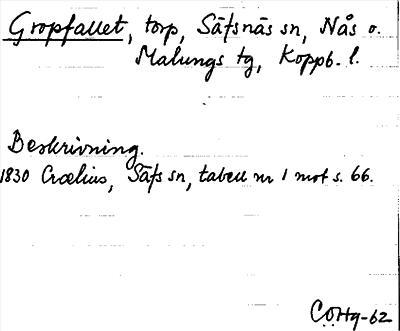 Gropfallet, torp, Säfsnäs sn, Nås o.
Malungs tg, Koppb. l.
Beskrivning.
1830 Crælius, Säfs sn, tabell nr 1 mot s. 66.
CÖHg-62